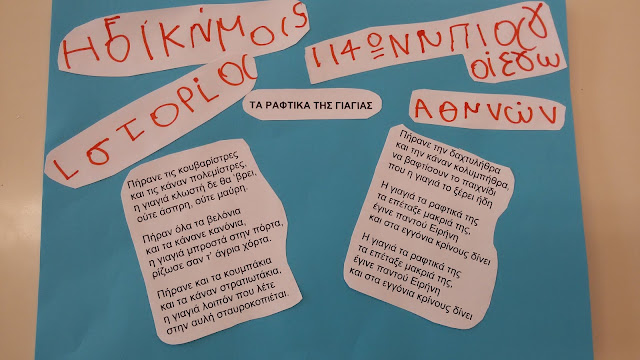 Η δίκήμας
Ιστορία
114Ω ΝΝΠΙαγ
οίεγω
ΑΘΗΝών
ΤΑ ΡΑΦΤΙΚΑ ΤΗΣ ΓΙΑΓΙΑΣ
Πήρανε τις κουβαρίστρες
και τις κάναν πολεμίστρες,
η γιαγιά κλωστή δε θα βρει,
ούτε άσπρη, ούτε μαύρη.
Πήραν όλα τα βελόνια
και τα κάνανε κανόνια,
η γιαγιά μπροστά στην πόρτα,
ρίζωσε σαν τ' άγρια χόρτα.
Πήρανε και τα κουμπάκια
και τα κάναν στρατιωτάκια,
η γιαγιά λοιπόν που λέτε
στην αυλή σταυροκοπιέται.
Πήρανε την δαχτυλήθρα
και την κάναν κολυμπήθρα,
να βαφτίσουν το παιχνίδι
που η γιαγιά το ξέρει ήδη
Η γιαγιά τα ραφτικά της
τα επέταξε μακριά της,
έγινε παντού Ειρήνη
και στα εγγόνια κρίνους δίνει
Η γιαγιά τα ραφτικά της
τα επέταξε μακριά της,
έγινε παντού Ειρήνη
και στα εγγόνια κρίνους δίνει